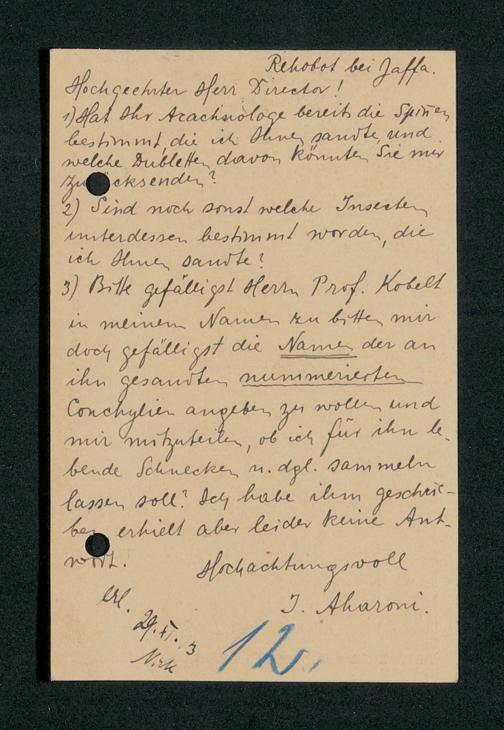 Rehobot bei Jaffa.
Hochgeehrter Herr Director!
1) Hat Ihr Arachnologe bereits die Spinnen
bestimmt, die ich Ihnen sandte, und
welche Dubletten davon könnten Sie mir
zurücksenden?
2) Sind noch sonst welche Insecten
unterdessen bestimmt worden, die
ich Ihnen sandte?
3) Bitte gefälligst Herrn Prof. Kobelt
in meinem Namen zu bitten mir
doch gefälligst die Namen der an
ihn gesandten nummerierten
Conchylien angeben zu wollen und
mir mitzuteilen, ob ich für ihn le-
bende Schnecken u. dgl. sammeln
lassen soll? Ich habe ihm geschrie-
ben erhielt aber leider keine Ant-
wort.
Hochachtungsvoll
J. Aharoni.
erl.
29.
12.